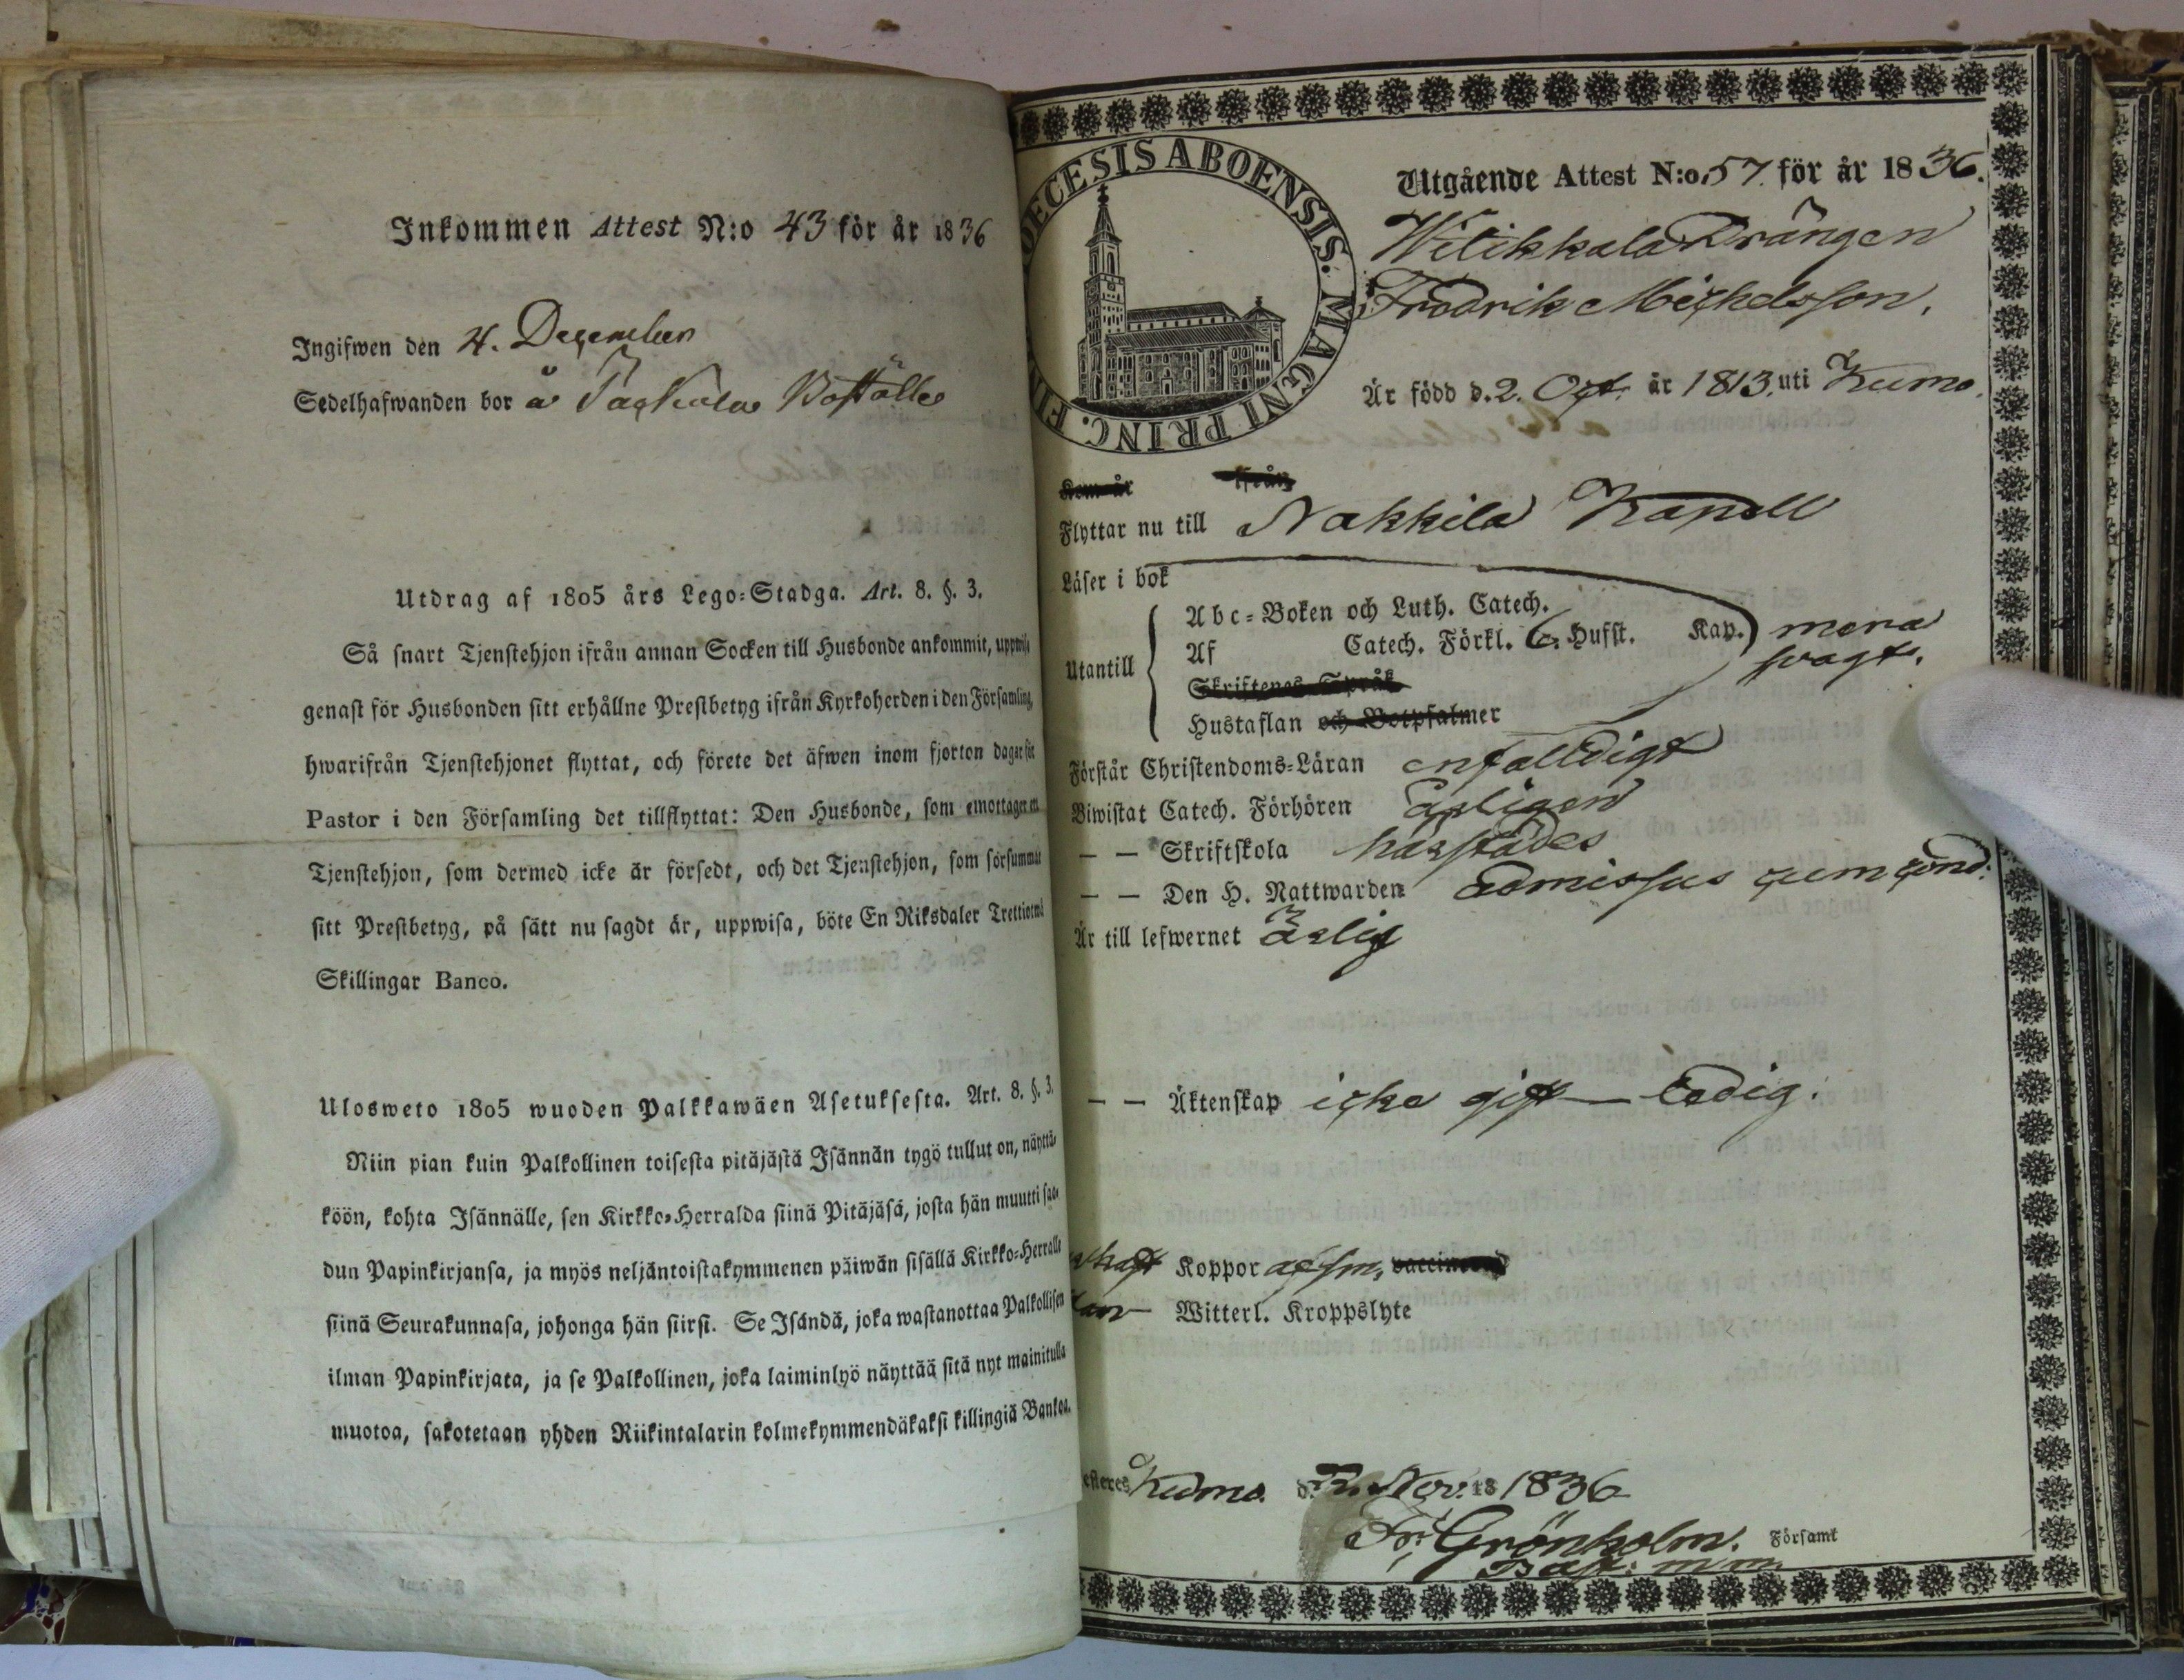 Inkommen Attest N:o 43 för år 1836
Ingifwen den 4. December
Sedelhafwanden bor å Boställe
Utdrag af 1805 års Lego-Stadga. Art. 8. §. 3.
Så snart Tjenstehjon ifrån annan Socken till Husbonde ankommit, uppwise
genast för Husbonden sitt erhållne Prestbetyg ifrån Kyrkoherden i den Församling,
hwarifrån Tjenstehjonet flyttat, och förete det äfwen inom fjorton dagar för
Pastor i den Församling det tillflyttat: Den Husbonde, som emottager ett
Tjenstehjon, som dermed icke är försedt, och det Tjenstehjon, som försummat
sitt Prestbetyg, på sätt nu sagdt är, uppwisa, böte En Riksdaler Trettiotwå
Skillingar Banco.
Ulosweto 1805 wuoden Palkkawäen Asetuksesta. Art. 8. §. 3.
Niin pian kuin Palkollinen toisesta pitäjästä Isännän tygö tullut on, näyttä-
köön, kohta Isännälle, sen Kirkko-Herralda siinä Pitäjäsä, josta hän muutti saa-
dun Papinkirjansa, ja myös neljäntoistakymmenen päiwän sisällä Kirkko-Herralle
siinä Seurakunnasa, johonga hän siirsi. Se Isändä, joka wastanottaa Palkollisen
ilman Papinkirjata, ja se Palkollinen, joka laiminlyö näyttää sitä nyt mainitulla
muotoa, sakotetaan yhden Riikintalarin kolmekymmendäkaksi killingiä Bankoa.
DIOECESIS ABOENSIS. MAGNI PRINC. FIN
Utgående Attest N:o 57. för år 1836.
Wilikkala Drängen
Fredrik Michelsson.
Är född d. 2. Oct. år 1813. uti Kumo.
Kom år ifrån
Flyttar nu till Nakkila Kapell
Läser i bok
Utantill
Abc-Boken och Luth. Catech.
Af Catech. Förkl. 6. Hufst. Kap. mera
svagt.
Skriftenes Språk
Hustaflan och Botpsalmer
Förstår Christendoms-Läran enfaldigt
Biwistat Catech. Förhören årligen
— — Skriftskola härstädes
— — Den H. Nattwarden admissus cum cond:
Är till lefwernet Ärlig
— — Äktenskap icke gift — ledig.
haft Koppor vaccinerad
— Witterl. Kroppslyte
esteres Kumo. d. Nov. 18 1836
Fr. Grönholm. Församl